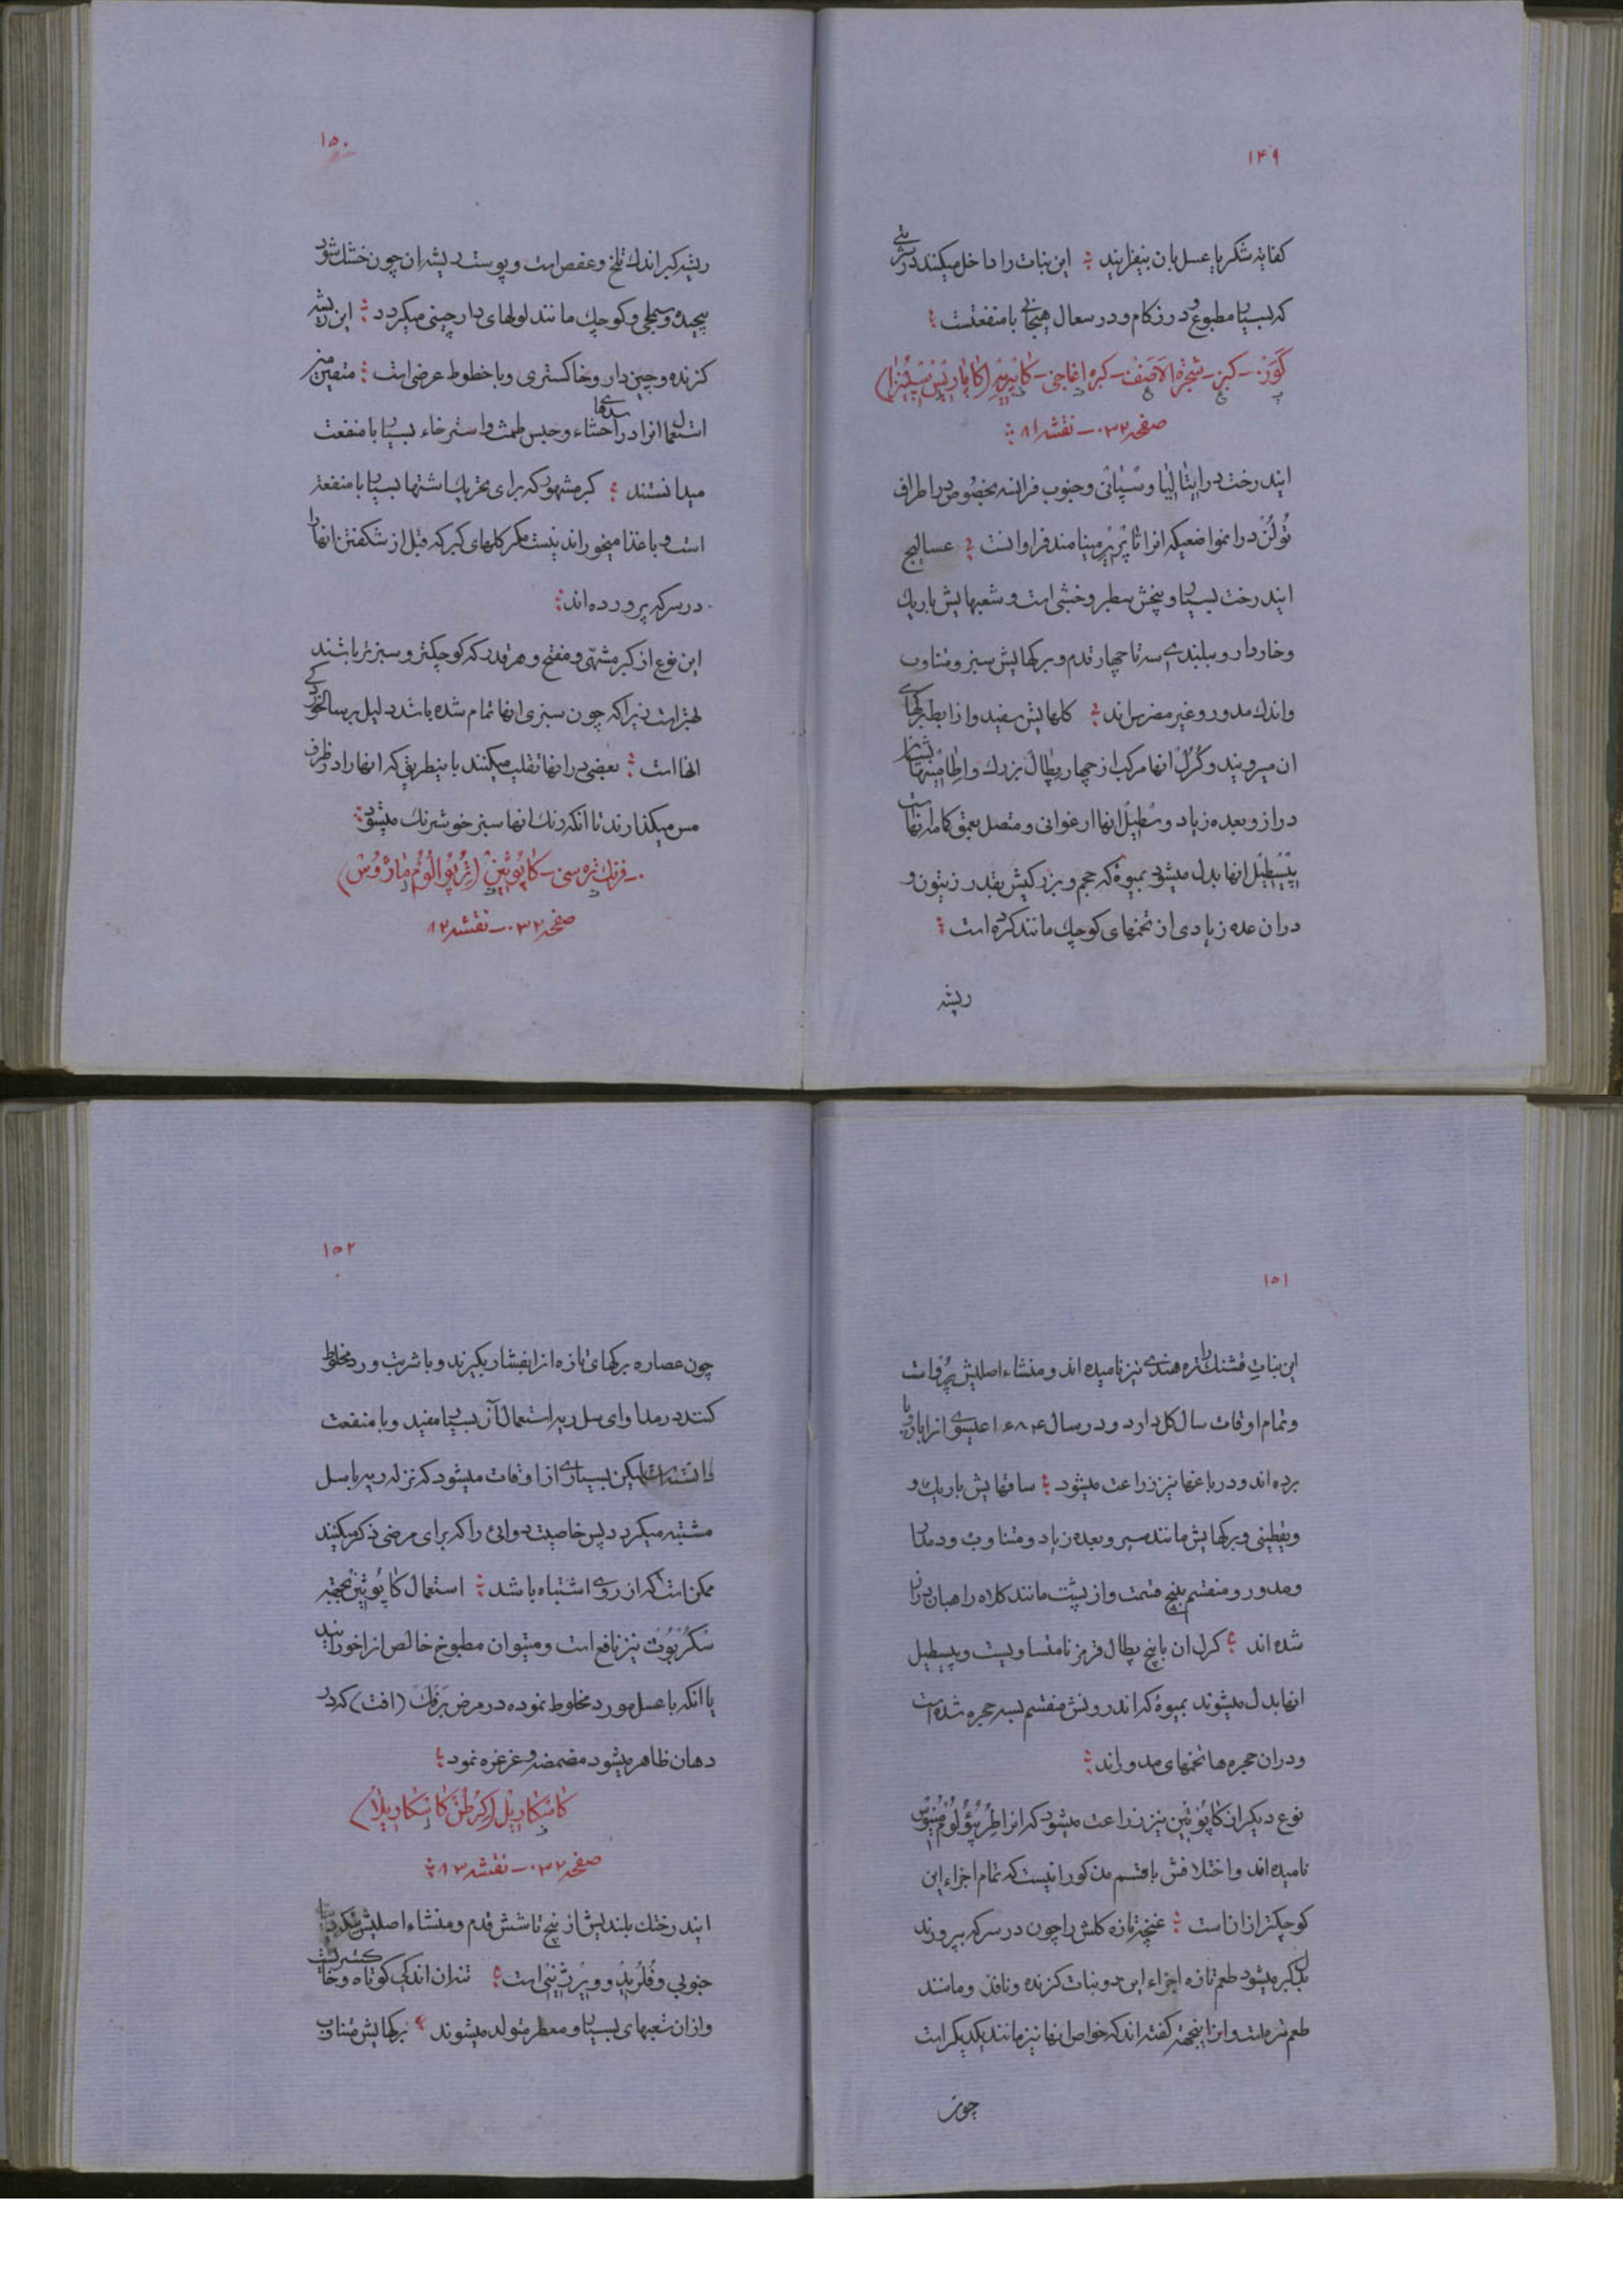 ۱۴۹
کفایه شکر یا عسل بان بیفزایند این نبات را داخل میکنند در شربتی
که بسیار مطبوع و در زکام و در سعال هیجانی با منفعتست
کَوَرْ – کبر – شجرة الاَصَفْ – کبره اغاجی – کاپریر (کاپاریس سپینزا)
صفحه ۳۲۰ – نقشه ۸۱
ایندرخت در ایتالیا و سپانی و جنوب فرانسه بخصوص در اطراف
تُولُنْ در انمواضعیکه انرا تاپرِیر مینامند فراوانست عسالیج
ایندرخت بسیار و بیخش سطبر و خشبی است و شعبهایش باریک
و خاردار و ببلندی سه تا چهار قدم و برکهایش سبز و متناوب
و اندک مدور و غیر مضرس اند کلهایش سفید و از ابط برکهای
ان میرویند و کُرُل انها مرکب از چهار پطال بزرک و اطامینهایشان
دراز و بعده زیاد و سطیل انها ارغوانی و متصل بعمق کاسه انهاست
پیسطیل انها بدل میشود بمیوۀ که حجم و بزرکیش بقدر زیتون و
در ان عده زیادی از تخمهای کوچک مانند کرده است
ریشه
۱۵۰
ریشه کبر اندک تلخ و عفص است و پوست ریشه ان چون خشک شود
پیچیده و سطحی و کوچک مانند لولهای دارچینی میکردد این ریشه
کزنده و چین دار و خاکستری و با خطوط عرضی است متقدمین
استعمال انرا در سدهای احشاء و حبس طمث و استرخاء بسیار با منفعت
میدانستند کبر مشهور که برای تحریک اشتها بسیار با منفعة
است و با غذا میخورند نیست مکر کلهای کبر که قبل از شکفتن انها را
در سرکه پرورده اند
این نوع از کبر مشهّی و مفتح و هر قدر که کوچکتر و سبزتر باشند
بهتر است زیرا که چون سبزی انها تمام شده باشد دلیل بر سالخوردکی
انها است بعضی در انها تقلب میکنند باینطریق که انها را در ظرف
مس میکذارند تا انکه رنک انها سبز خوشرنک میشود
فرنک تره سی – کاپُوثین (تِرُپوالُوُم ماژوس)
صفحه ۳۲۰ – نقشه ۸۲
۱۵۱
این نباتِ قشنک را تره هندی نیز نامیده اند و منشاء اصلیش پِرُو است
و تمام اوقات سال کل دارد و در سال ۱۶۸۴ عیسوی انرا باروپا
برده اند و در باغها نیز زراعت میشود ساقهایش باریک و
و یقطینی و برکهایش مانند سپر و بعده زیاد و متناوب و دمدار
و مدور و منقسم به پنج قسمت و از پشت مانند کلاه راهبان دراز
شده اند کرل ان با پنج پطال قرمز نامتساویست و پیسطیل
انها بدل میشوند بمیوۀ که اندرونش منقسم بسه حجره شده است
و در ان حجره ها تخمهای مدوراند
نوع دیکر از کاپُوثین نیز زراعت میشود که انرا طِرُپُوُلُوُم مینوس
نامیده اند و اختلافش با قسم مذکور انیست که تمام اجزاء این
کوچکتر از ان است غنچه تازه کلش را چون در سرکه بپروردند
بدل کبر میشود طعم تازه اجزاء این دو نبات کزنده و نافذ و مانند
طعم تره است و از اینجهة کفته اند که خواص انها نیز مانند یکدیکر است
چون
۱۵۲
چون عصاره برکهای تازه انرا بفشار بکیرند و با شربت ورد مخلوط
کنند در مداوای سل ریه استعمال آن بسیار مفید و با منفعت
دانسته اند لیکن بسیاری از اوقات میشود که نزله ریه با سل
مشتبه میکردد پس خاصیت دوائی را که برای مرضی ذکر میکنند
ممکن است که از روی اشتباه باشد استعمال کاپُوثین بجهة
سکُرْبُوت نیز نافع است و میتوان مطبوخ خالص انرا خورانید
یا انکه با عسل مورد مخلوط نموده در مرض برفک (افت) که در
دهان ظاهر میشود مضمضه و غرغره نمود
کاسکاریل (کرُطُن کاسکاریلا)
صفحه ۳۲۰ – نقشه ۸۳
ایندرختک بلندیش از پنج تا شش قدم و منشاء اصلیش
جنوبی و فلُرید و ویرژینی است تنه ان اندکی کوتاه و خاکستریست
و از ان شعبهای بسیار و معطر متولد میشوند برکهایش متناوب